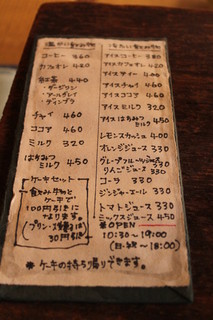 温かい飲みもの
コーヒー 360
カフェオレ 420
紅茶 440
・ダージリン
・アールグレイ
・ディンブラ
チャイ 460
ココア 460
ミルク 320
はちみつ
ミルク 450
ケーキセット
飲みものと
ケーキで
100円引きに
なります。
30円引き
冷たい飲みもの
アイスコーヒー 380
アイスカフェオレ 420
アイスティー 440
アイスチャイ 460
アイスココア 460
アイスミルク 320
アイスはちみつ
ミルク 450
レモンスカッシュ 400
オレンジジュース 330
グレープフルーツジュース
りんごジュース 330
コーラ 330
ジンジャーエール 330
トマトジュース 330
ミックスジュース 450
OPEN
10:30~19:00
(日・祝~18:00)
＊ケーキの持ち帰りできます。